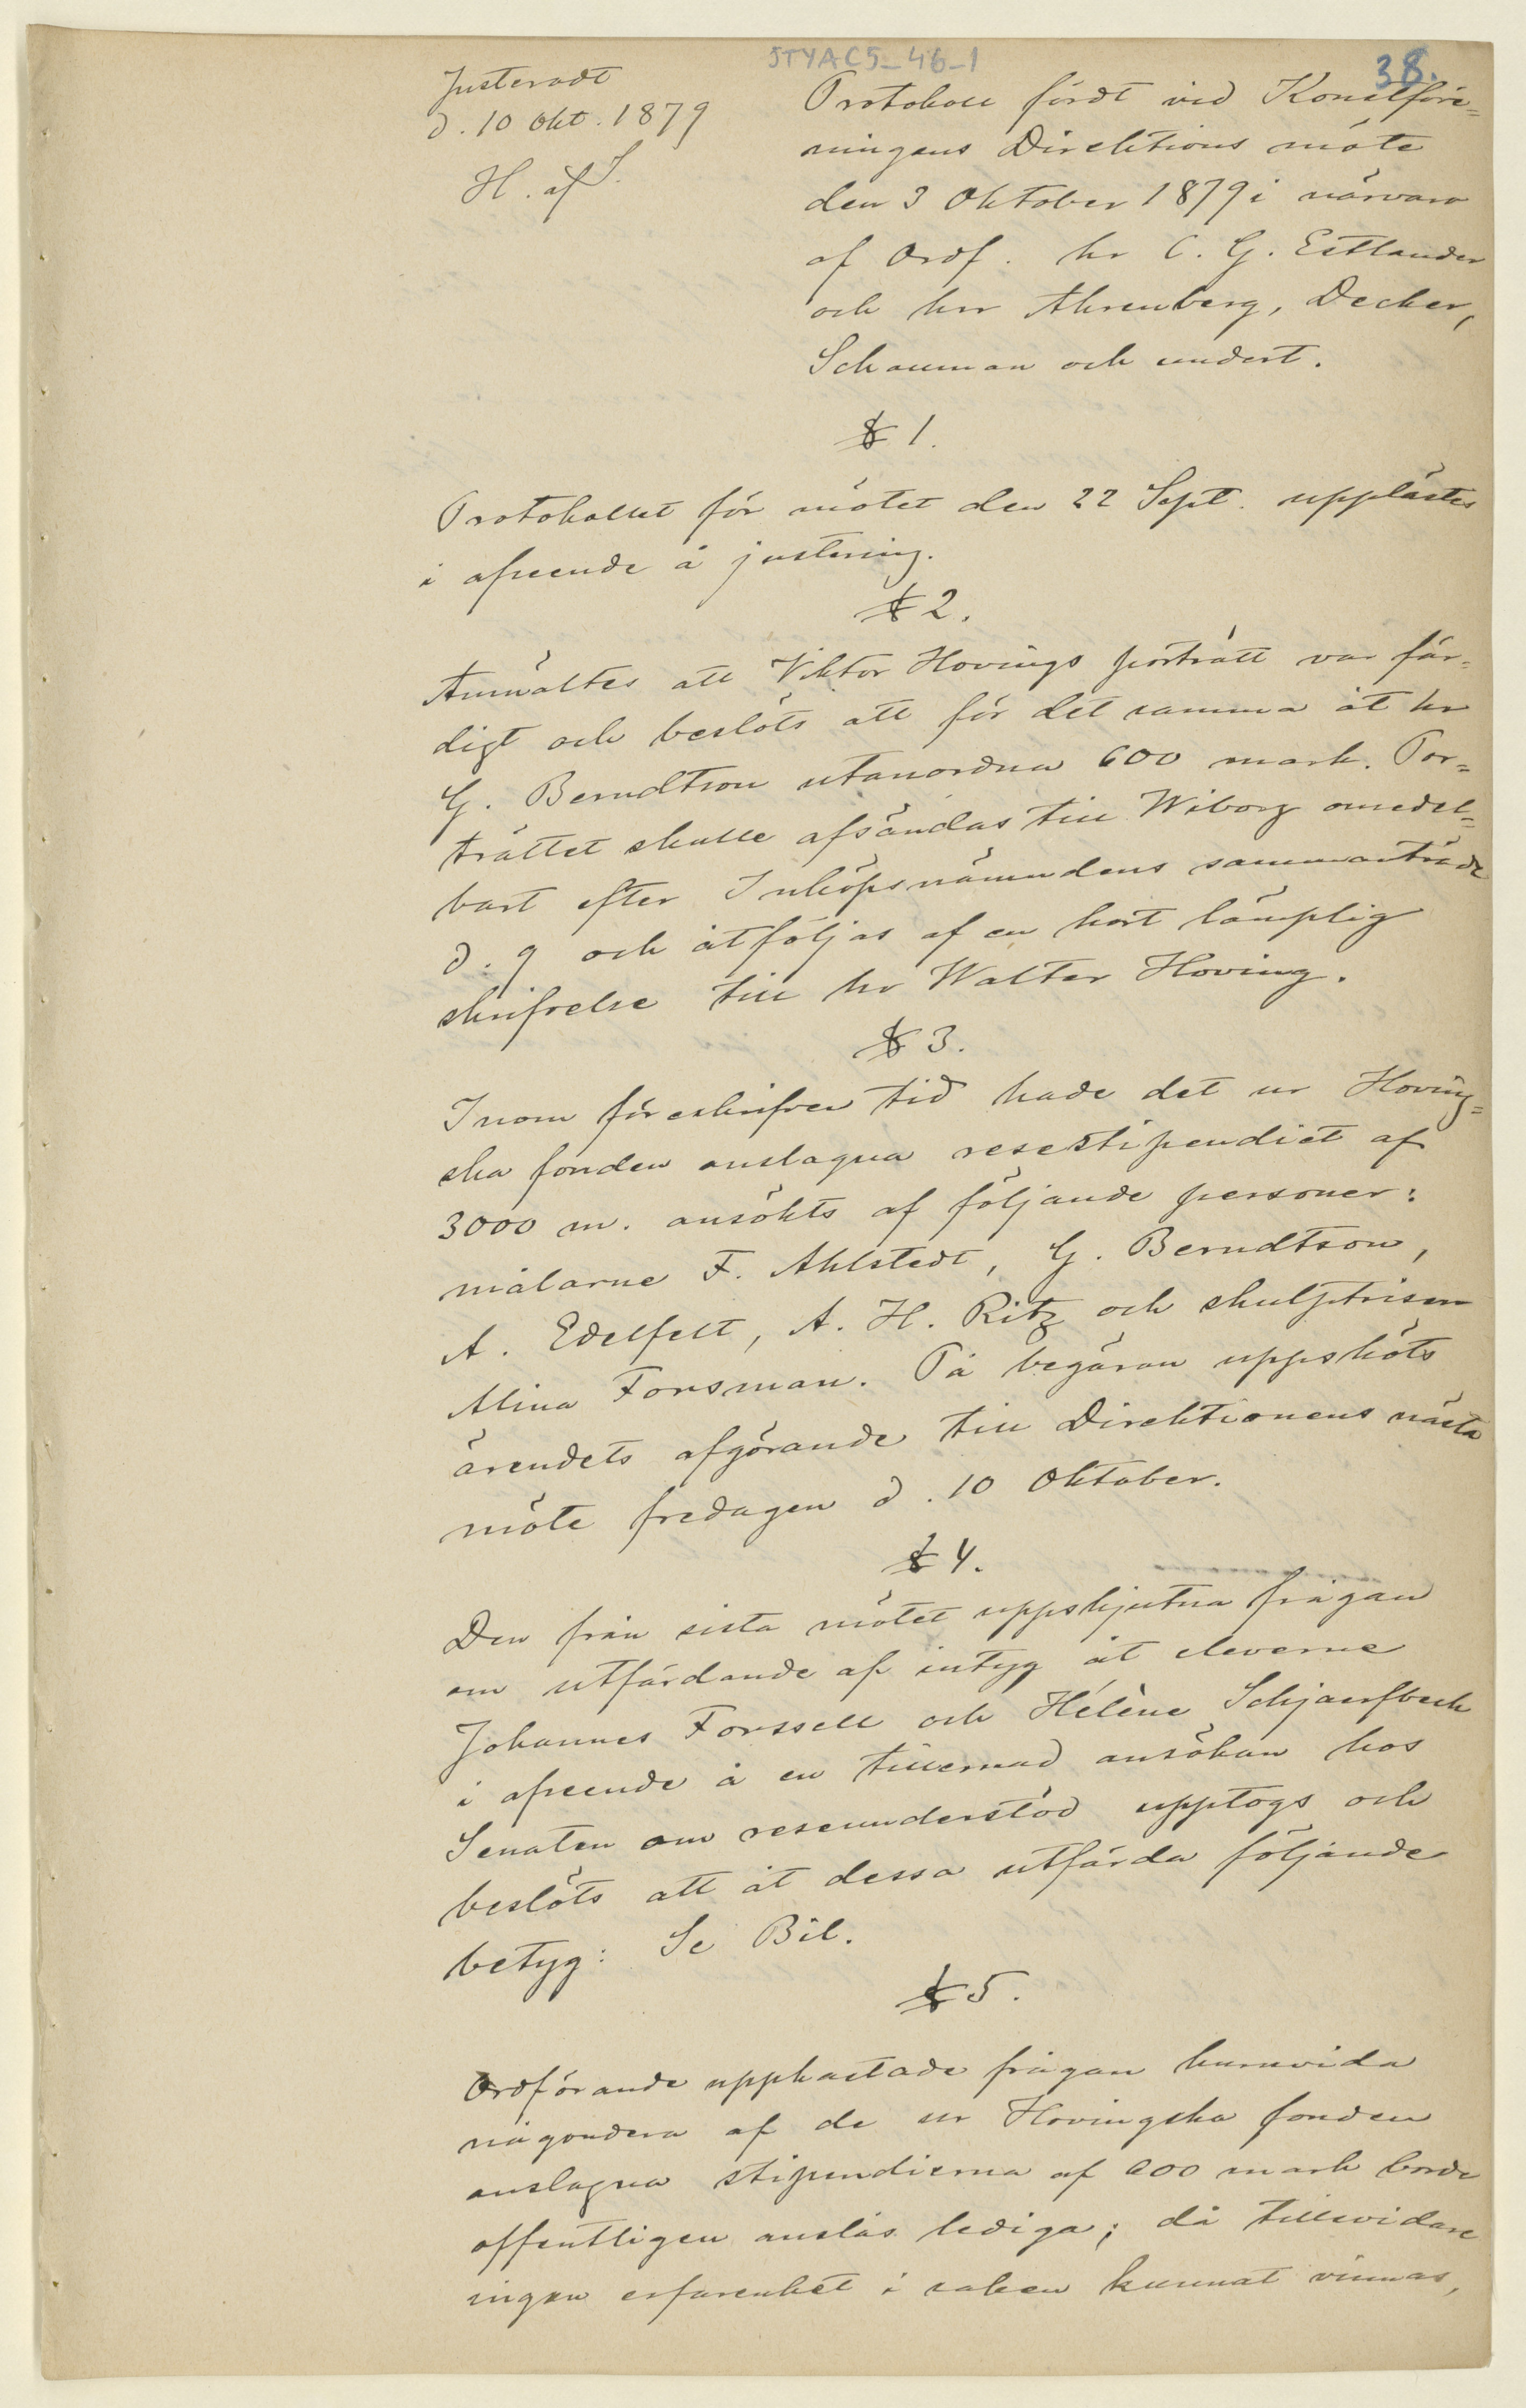 STYAC5_46_1
38.
Justeradt
d. 10 Okt. 1879
H. af S.
Protokoll fördt vid Konstföre=
ningens Direktions möte
den 3 Oktober 1879 i närvaro
af Ordf. hr C. G. Estlander
och hrr Ahrenberg, Decker,
Schauman och undert.
§ 1.
Protokollet för mötet den 22 Sept. upplästes
i afseende å justering.
§ 2.
Anmältes att Viktor Hovings porträtt var fär=
digt och beslöts att för det samma åt hr
G. Berndtson utanordna 600 mark. Por=
trättet skulle afsändas till Wiborg omedel=
bart efter Inköpsnämndens sammanträde
d. 9 och åtföljas af en kort lämplig
skrifvelse till hr Walter Hoving.
§ 3.
Inom föreskrifven tid hade det ur Hoving=
ska fonden anslagna resestipendiet af
3000 m. ansökts af följande personer:
målarne F. Ahlstedt, G. Berndtson,
A. Edelfelt, A. H. Ritz och skulptrisen
Alina Forsman. På begäran uppsköts
ärendets afgörande till Direktionens nästa
möte fredagen d. 10 Oktober.
§ 4.
Den från sista mötet uppskjutna frågan
om utfärdande af intyg åt eleverne
Johannes Forssell och Hélène Schjaerfbeck
i afseende å en tillernad ansökan hos
Senaten om reseunderstöd upptogs och
beslöts att åt dessa utfärda följande
betyg: Se Bil.
§ 5.
Ordförande uppkastade frågan huruvida
någondera af de ur Hovingska fonden
anslagna stipendierna af 600 mark borde
offentligen anslås lediga; då tillsvidare
ingen erfarenhet i saken kunnat vinnas,